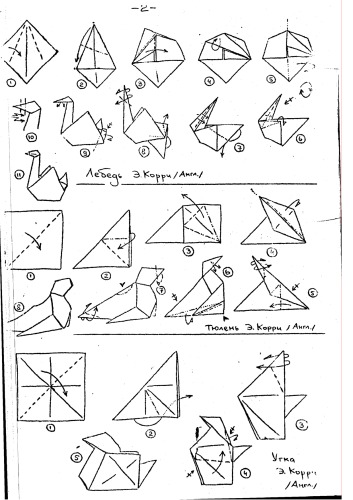 -2-
1 2 3 4 5
10 9 8 7 6
11
Лебедь Э.Корри /Англ./
1 2 3 4
8 7 6 5
Тюлень Э.Корри /Англ./
1 2 3
5 4
Утка
Э.Корри
/Англ/